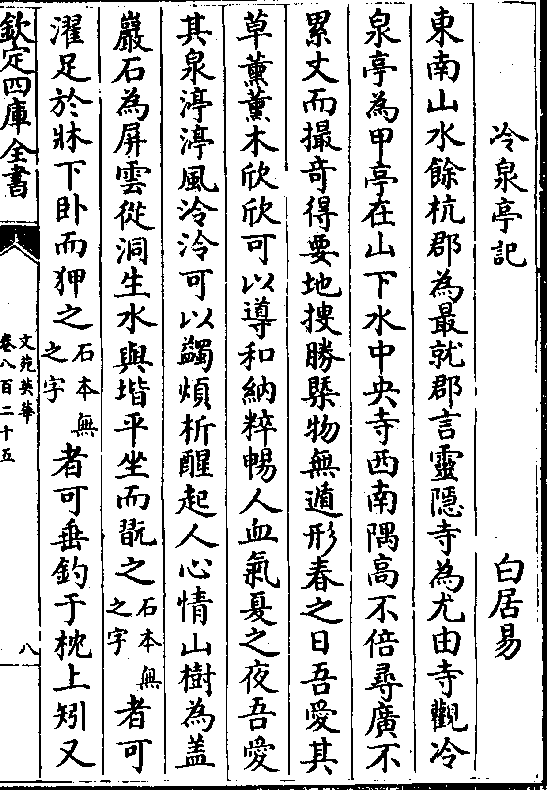 冷泉亭記 白居易
東南山水餘杭郡為最就郡言靈隱寺為尤由寺觀冷
泉亭為甲亭在山下水中央寺西南隅高不倍尋廣不
累丈而撮竒得要地搜勝槩物無遁形春之日吾愛其
草薰薰木欣欣可以導和納粹暢人血氣夏之夜吾愛
其泉渟渟風泠泠可以蠲煩析酲起人心情山樹為蓋
巖石為屏雲從洞生水與堦平坐而翫之石本無之字者可
濯足於牀下卧而狎之石本無之字者可垂釣于枕上矧又
欽定四庫全書
文苑英華
卷八百二十五
八